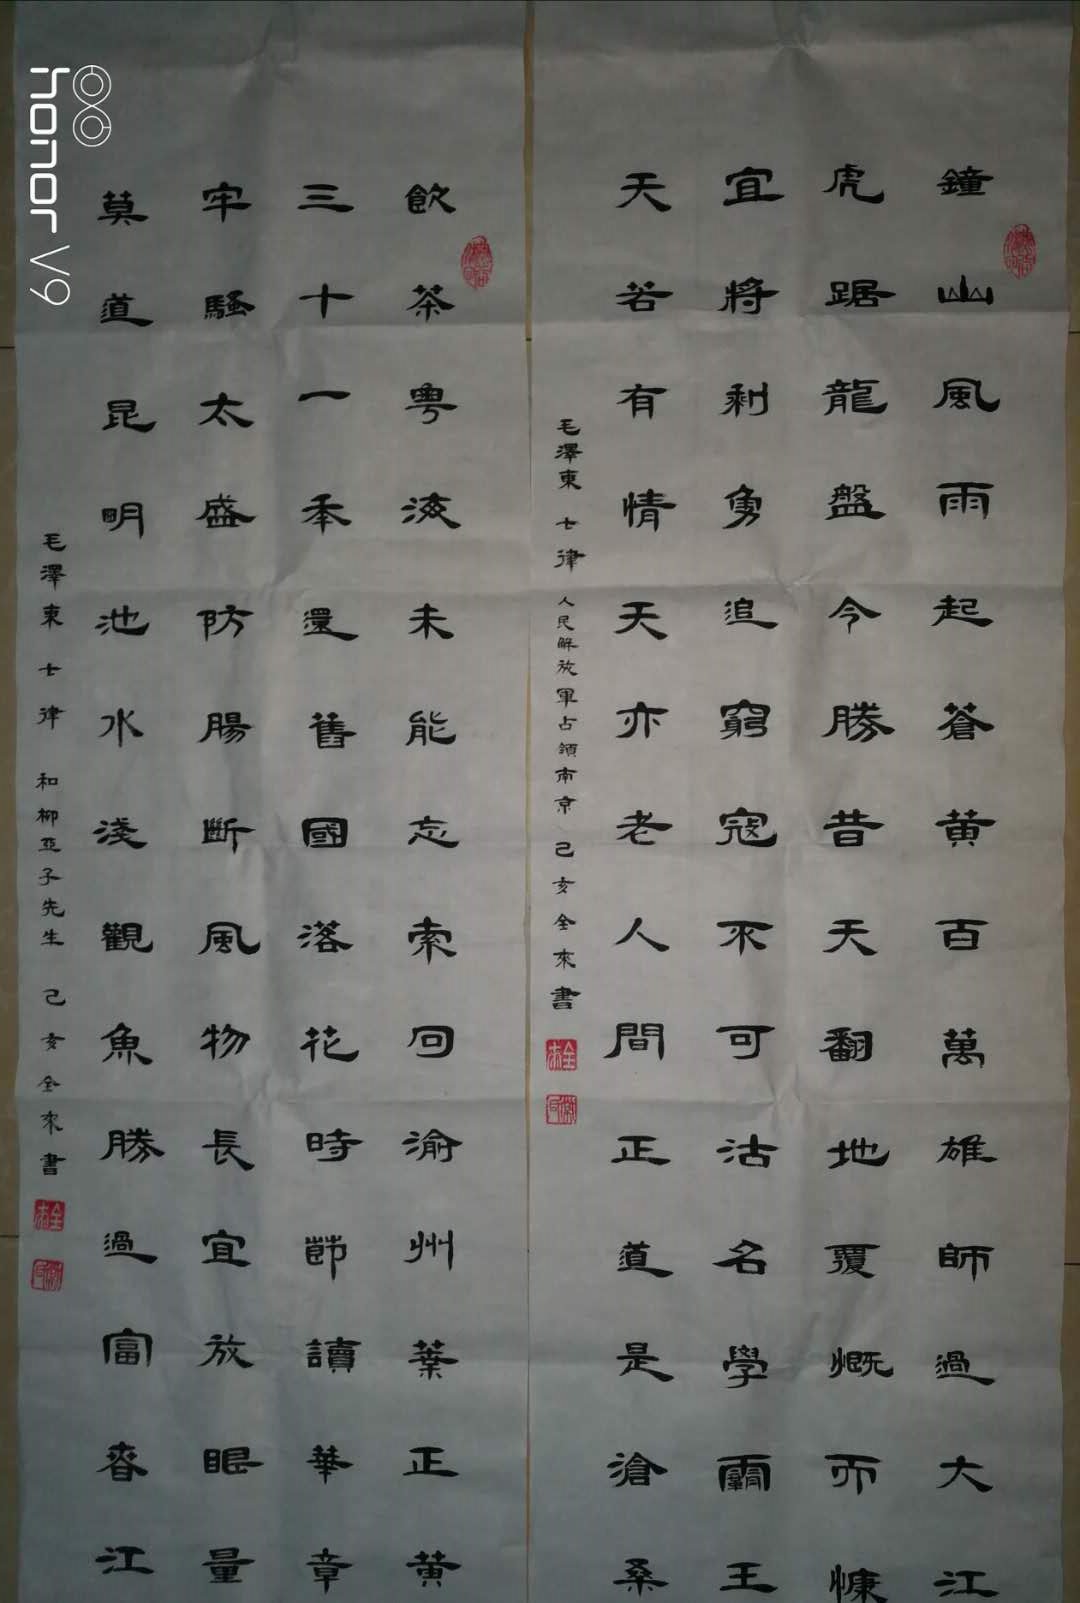 鐘山風雨起蒼黄百萬雄師過大江
虎踞龍盤今勝昔天翻地覆慨而慷
宜將剩勇追窮寇不可沽名學霸王
天若有情天亦老人間正道是滄桑
毛澤東 七律 人民解放軍占領南京 己亥全來書
全來
飲茶粤海未能忘索句渝州葉正黄
三十一年還舊國落花時節讀華章
牢騷太盛防腸斷風物長宜放眼量
莫道昆明池水淺觀魚勝過富春江
毛澤東 七律 和柳亞子先生 己亥全來書
全來
honor V9